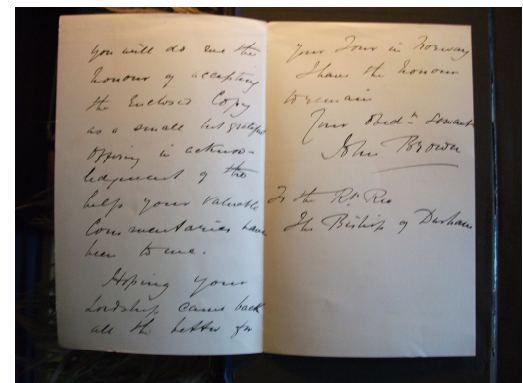 you will do me the
honour of accepting
the Enclosed Copy
as a small but grateful
offering in acknow-
ledgment of the
help your valuable
Commentaries have
been to me.
Hoping your
Lordship came back
all the better for
your Tour in Norway
I have the honour
to remain
Your Obedt Servant
John Brown
To the Rt Rev
The Bishop of Durham